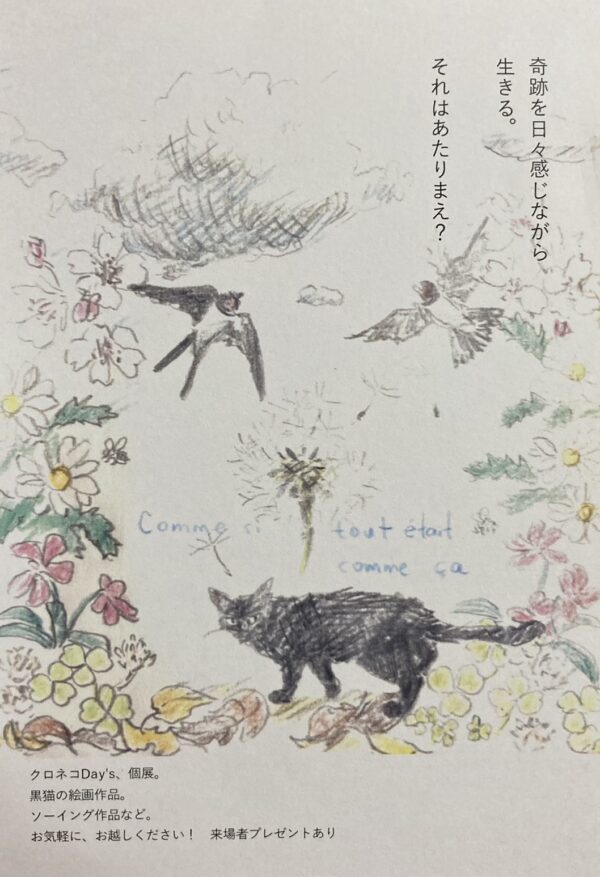 奇跡を日々感じながら
生きる。
それはあたりまえ？
Comme si tout était
comme ça
クロネコDay's、個展。
黒猫の絵画作品。
ソーイング作品など。
お気軽に、お越しください！　来場者プレゼントあり